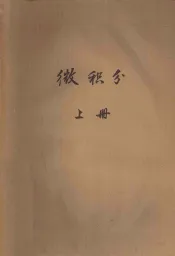 微积分
上册